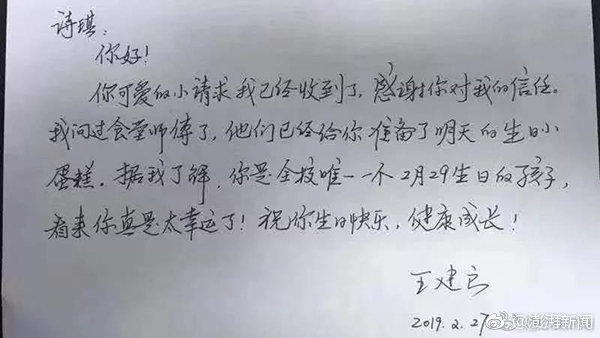 诗琪:
你好!
你可爱的小请求我已经收到了,感谢你对我的信任。
我问过食堂师傅了,他们已经给你准备了明天的生日小
蛋糕。据我了解,你是全校唯一一个2月29生日的孩子,
看来你真是太幸运了!祝你生日快乐,健康成长!
王建良
2019.2.27
@澎湃新闻